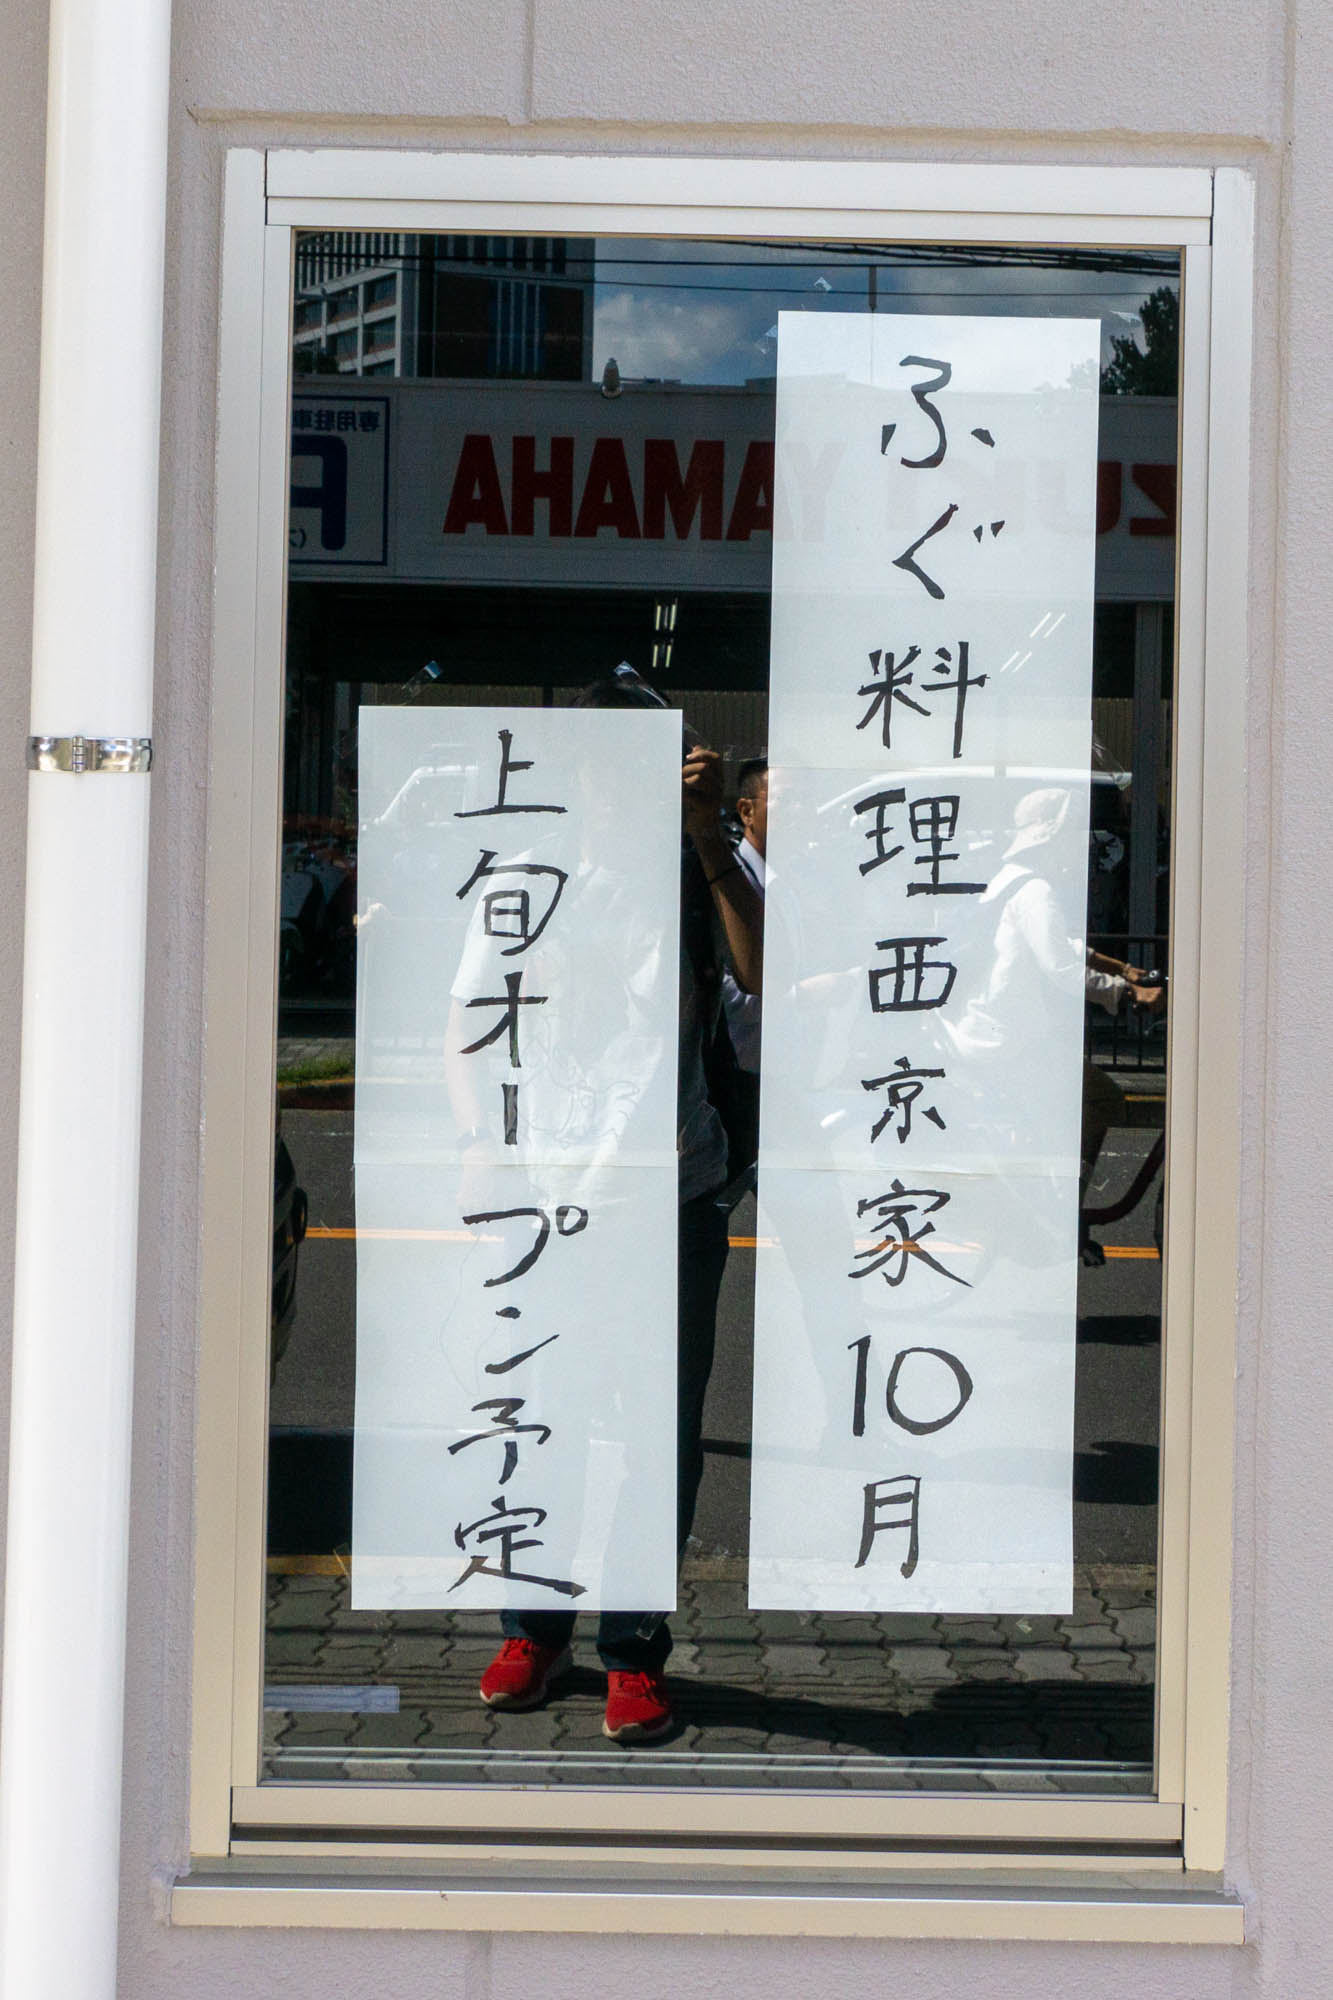 ふぐ料理西京家10月
上旬オープン予定
専用駐車
YAMAHA
SUZUKI